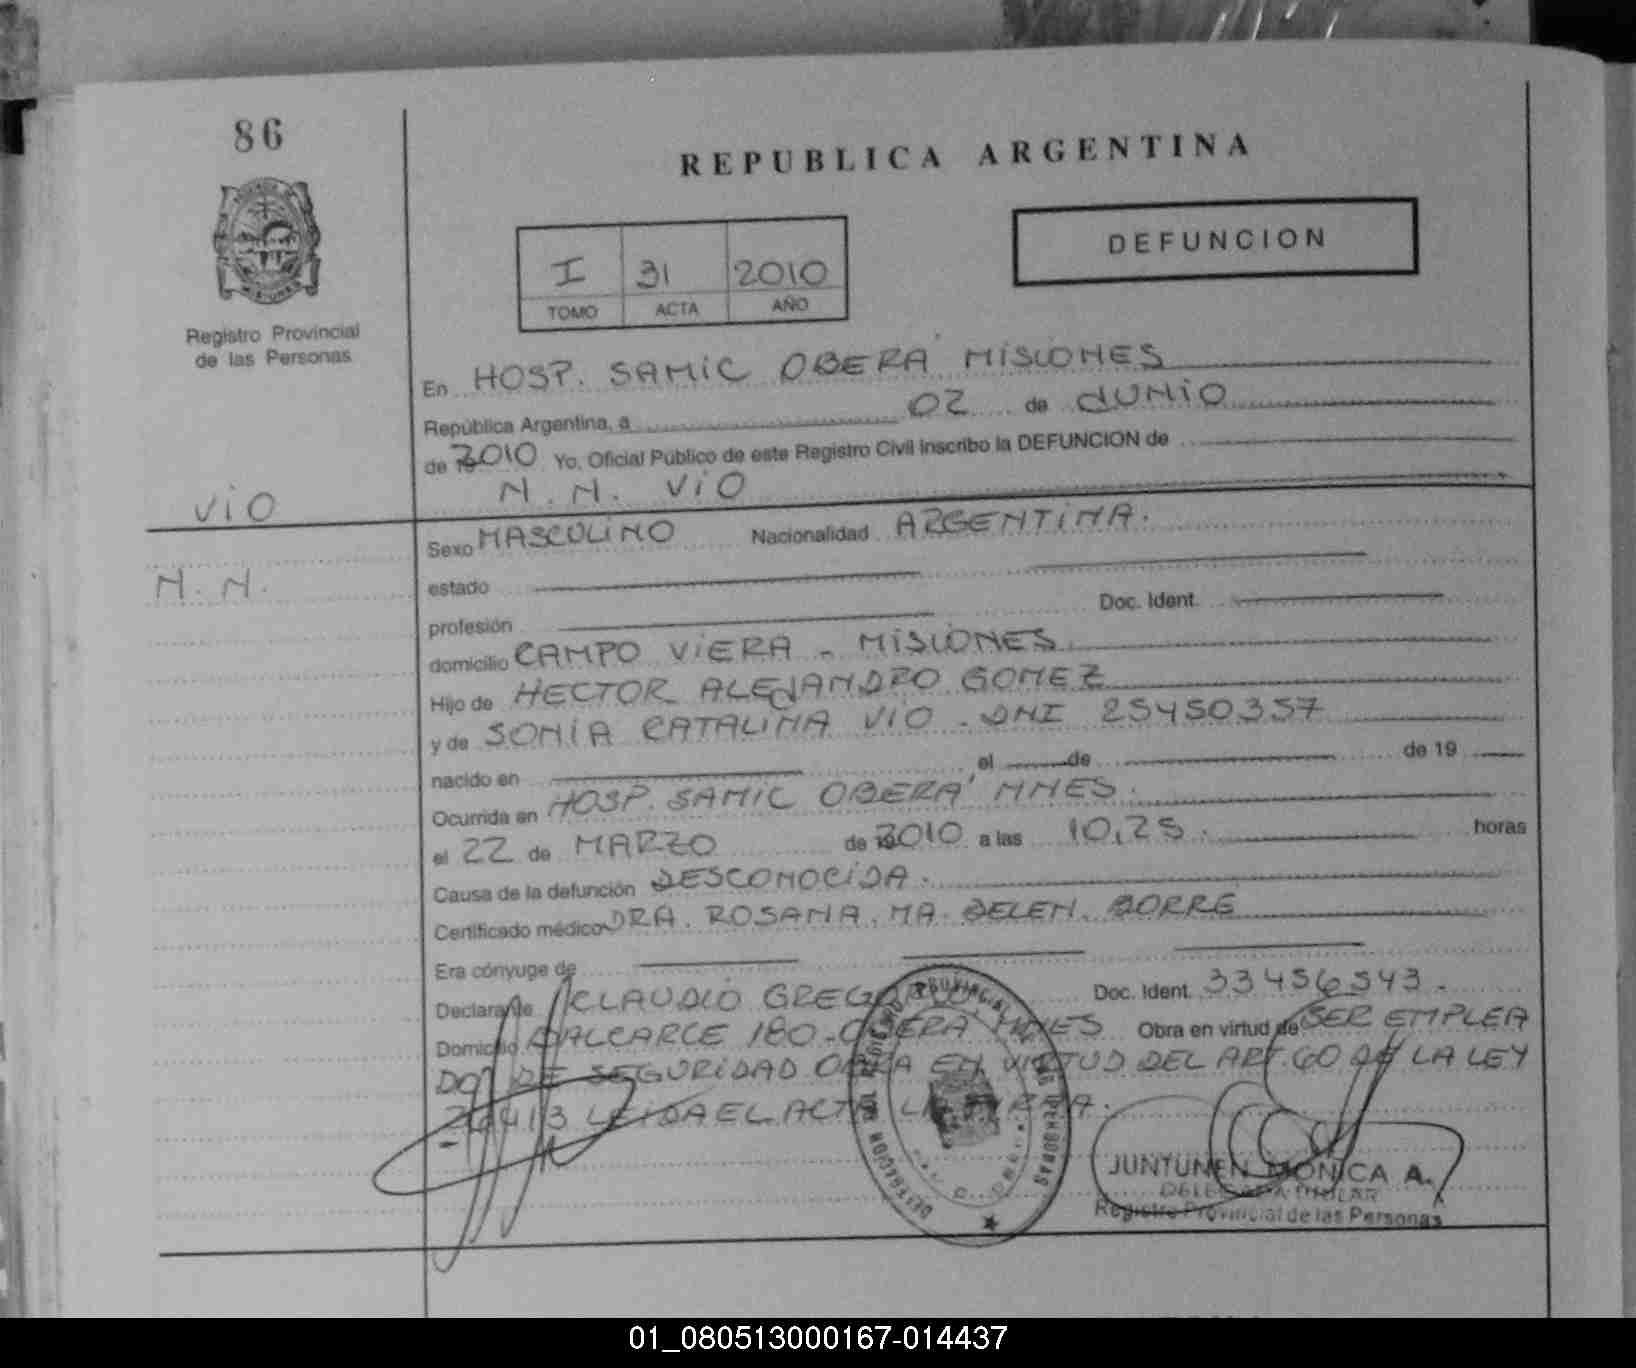 86
REPUBLICA ARGENTINA
DEFUNCION
I 31 2010
TOMO ACTA AÑO
MISIONES
Registro Provincial
de las Personas
En HOSP. SAMIC OBERA MISIONES
República Argentina, a 02 de JUNIO
de 2010 Yo, Oficial Público de este Registro Civil inscribo la DEFUNCION de
N. N. VIO
VIO
N. N.
Sexo MASCULINO Nacionalidad ARGENTINA.
estado
profesión Doc. Ident.
domicilio CAMPO VIERA - MISIONES
Hijo de HECTOR ALEJANDRO GOMEZ
y de SONIA CATALINA VIO - DNI 25450357
nacido en el de de 19
Ocurrida en HOSP. SAMIC OBERA MNES.
el 22 de MARZO de 2010 a las 10,25. horas
Causa de la defunción DESCONOCIDA.
Certificado médico DRA. ROSANA MA. BELEN BORRE
Era cónyuge de
Declarante CLAUDIO GREGORIO Doc. Ident. 33456543.
Domicilio BALCARCE 180-OBERA MNES Obra en virtud de SER EMPLEA
DO DE SEGURIDAD OBRA EN VIRTUD DEL ART. 60 DE LA LEY
26413 LEIDA EL ACTA LA FIRMA.
JUNTUNEN MONICA A.
DELEGADA TITULAR
Registro Provincial de las Personas
01_080513000167-014437